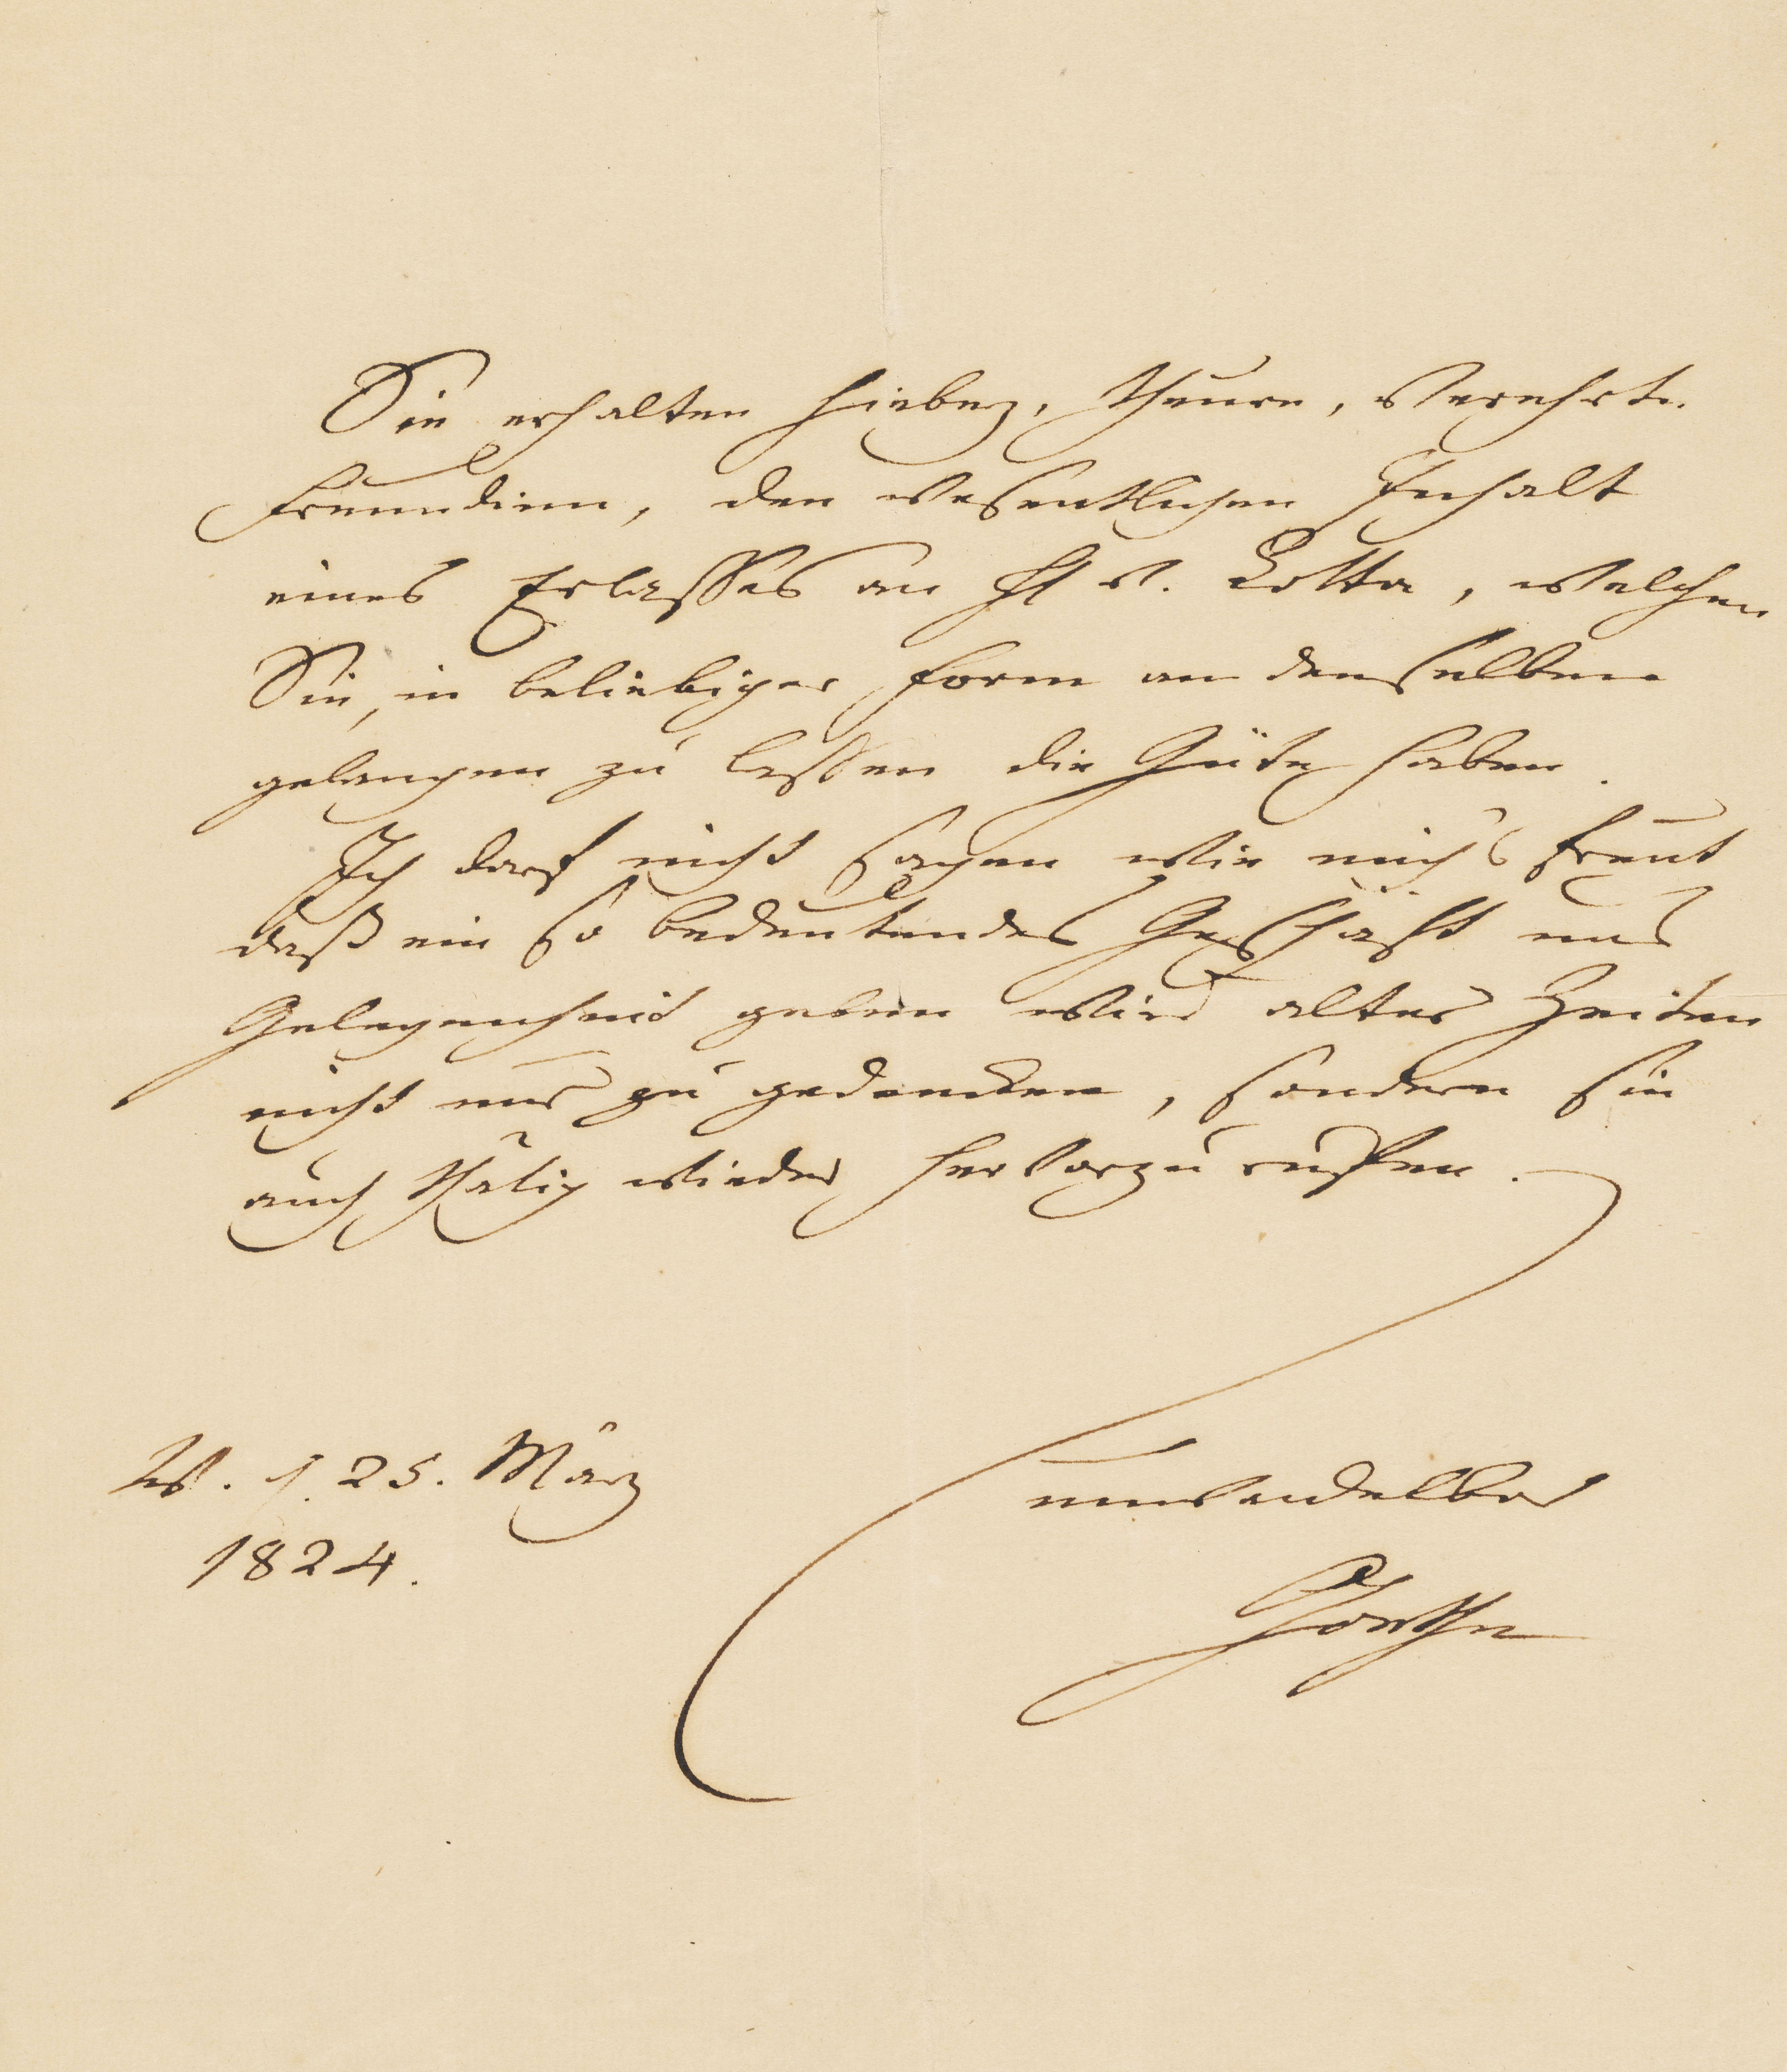 Sie erhalten hiebey, theure, verehrte
Freundinn, den wesentlichen Inhalt
eines Erlasses an H v. Cotta, welchen
Sie, in beliebiger Form an denselben
gelangen zu lassen die Güte haben.
Ich darf nicht sagen wie mich's freut
daß ein so bedeutendes Geschäft uns
Gelegenheit geben wird alter Zeiten
nicht nur zu gedencken, sondern sie
auch thätig wieder hervorzurufen.
unwandelbar
Goethe
W. d. 25. März
1824.